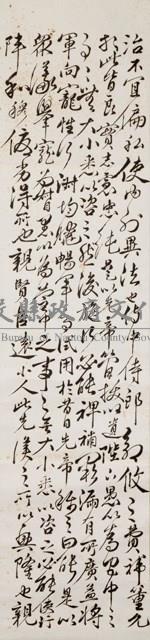 治不宜偏私使內外異法也侍中侍郎郭攸之費禕董允
於此皆良實志慮忠純是以先帝簡拔以遺陛下愚以為宮中之
事無大小悉以咨之然後施行必能裨補闕漏有所廣益將
軍向寵性行淑均曉暢軍事試用於昔日先帝稱之曰能是以
眾議舉寵為督愚以為營中之事事無大小悉以咨之必能使行
陣和穆優劣得所也親賢臣遠小人此先漢之所以興隆也親
縣政府文
Bureau of Nantou County Gov